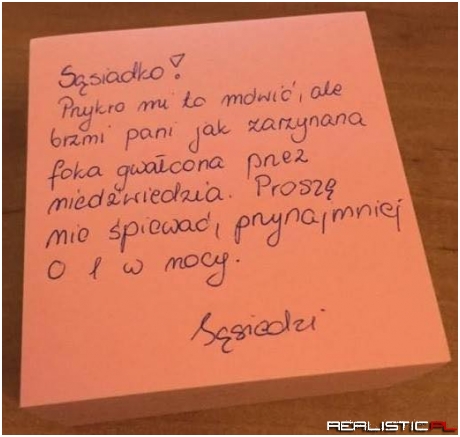 Sąsiadko!
Przykro mi to mówić, ale
brzmi pani jak zarzynana
foka gwałcona przez
niedźwiedzia. Proszę
nie śpiewać, przynajmniej
o 1 w nocy.
Sąsiedzi
REALISTIC.PL